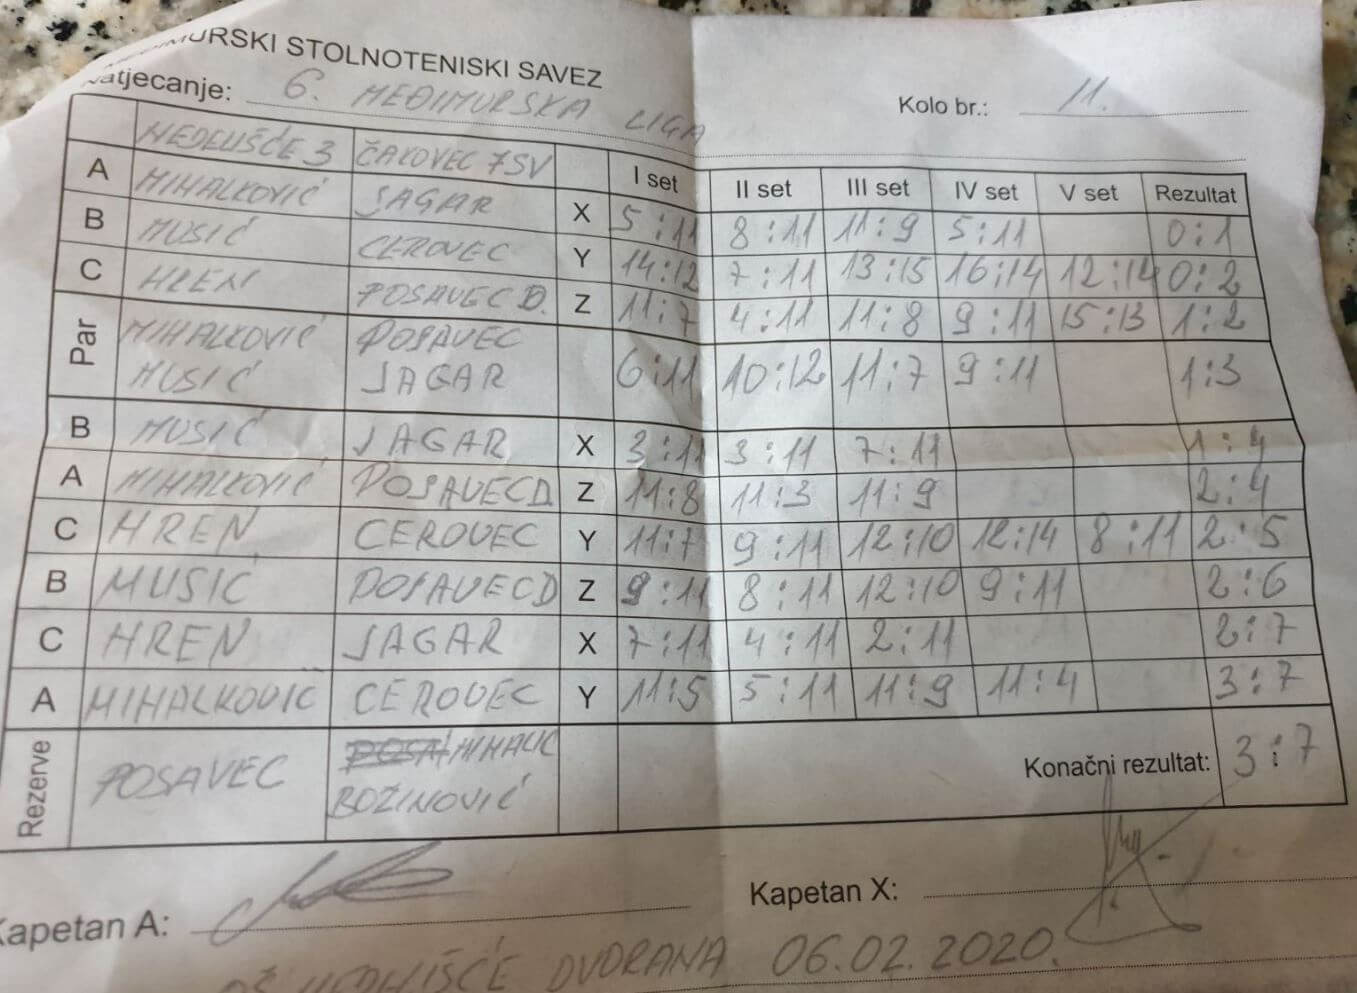 MEĐIMURSKI STOLNOTENISKI SAVEZ
Natjecanje: 6. MEĐIMURSKA LIGA Kolo br.: 11.
NEDELIŠĆE 3 ČAKOVEC 7SV I set II set III set IV set V set Rezultat
A MIHALKOVIĆ JAGAR X 5:11 8:11 11:9 5:11 0:1
B MUSIĆ CEROVEC Y 14:12 7:11 13:15 16:14 12:14 0:2
C HREN POSAVEC D. Z 11:7 4:11 11:8 9:11 15:13 1:2
Par MIHALKOVIĆ POSAVEC
MUSIĆ JAGAR 6:11 10:12 11:7 9:11 1:3
B MUSIĆ JAGAR X 3:11 3:11 7:11 1:4
A MIHALKOVIĆ POSAVEC D Z 11:8 11:3 11:9 2:4
C HREN CEROVEC Y 11:7 9:11 12:10 12:14 8:11 2:5
B MUSIĆ POSAVEC D Z 9:11 8:11 12:10 9:11 2:6
C HREN JAGAR X 7:11 4:11 2:11 2:7
A MIHALKOVIC CEROVEC Y 11:5 5:11 11:9 11:4 3:7
Rezerve POSAVEC MIHALIC
BOŽINOVIĆ
Konačni rezultat: 3:7
Kapetan A: Kapetan X:
OŠ NEDELIŠĆE DVORANA 06.02.2020.